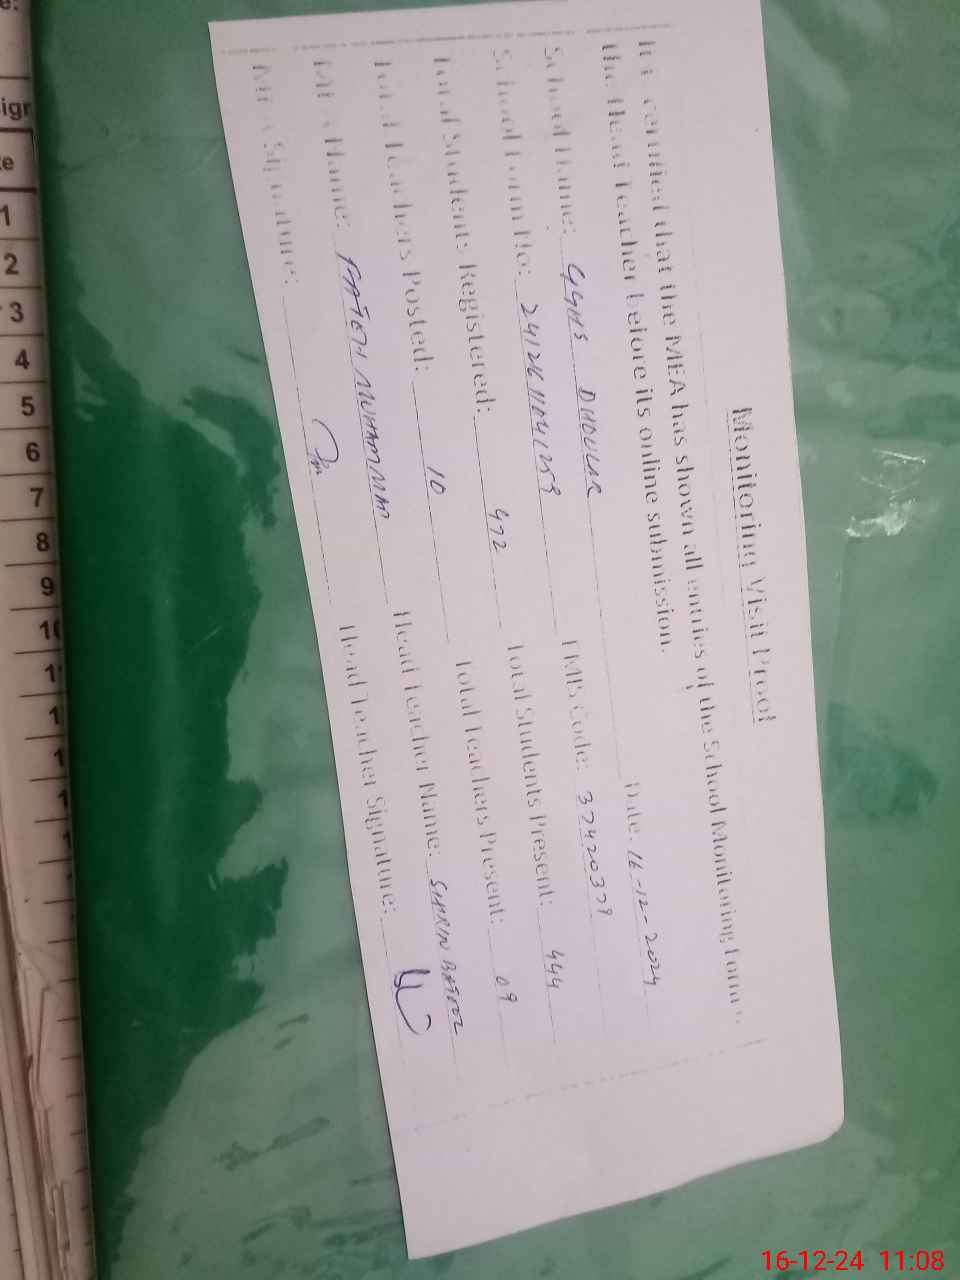 Monitoring Visit Proof
It is certified that the MEA has shown all entries of the School Monitoring Form to
the Head Teacher before its online submission.
Date: 16-12-2024
School Name: GGHS DHOULAR
EMIS Code: 37420379
School Form No:
Total Students Present: 444
Total Students Registered: 472
Total Teachers Present: 09
Total Teachers Posted: 10
Head Teacher Name:
MEA Name: FATEH MUHAMMAD
Head Teacher Signature:
MEA Signature:
sign
1
2
3
4
5
6
7
8
9
16-12-24 11:08